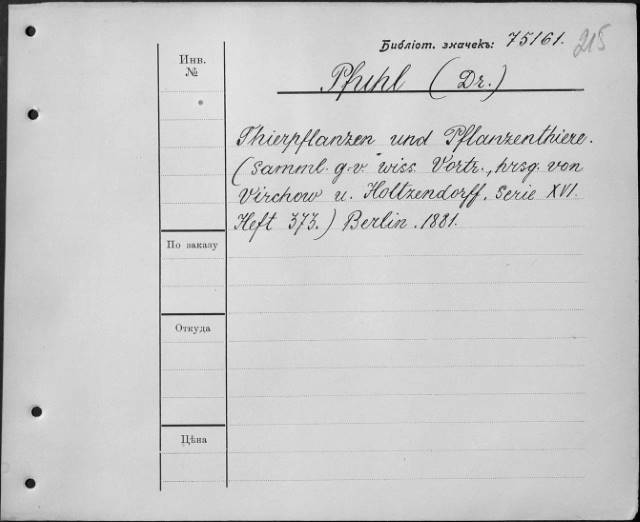 Библіот. значекъ: 75161.
215
Инв.
№
Pfuhl (Dr.)
Thierpflanzen und Pflanzenthiere.
(Samml. g. v. wiss. Vortr., hrsg. von
Virchow u. Holtzendorff. Serie XVI.
Heft 373.) Berlin. 1881.
По заказу
Откуда
Цѣна